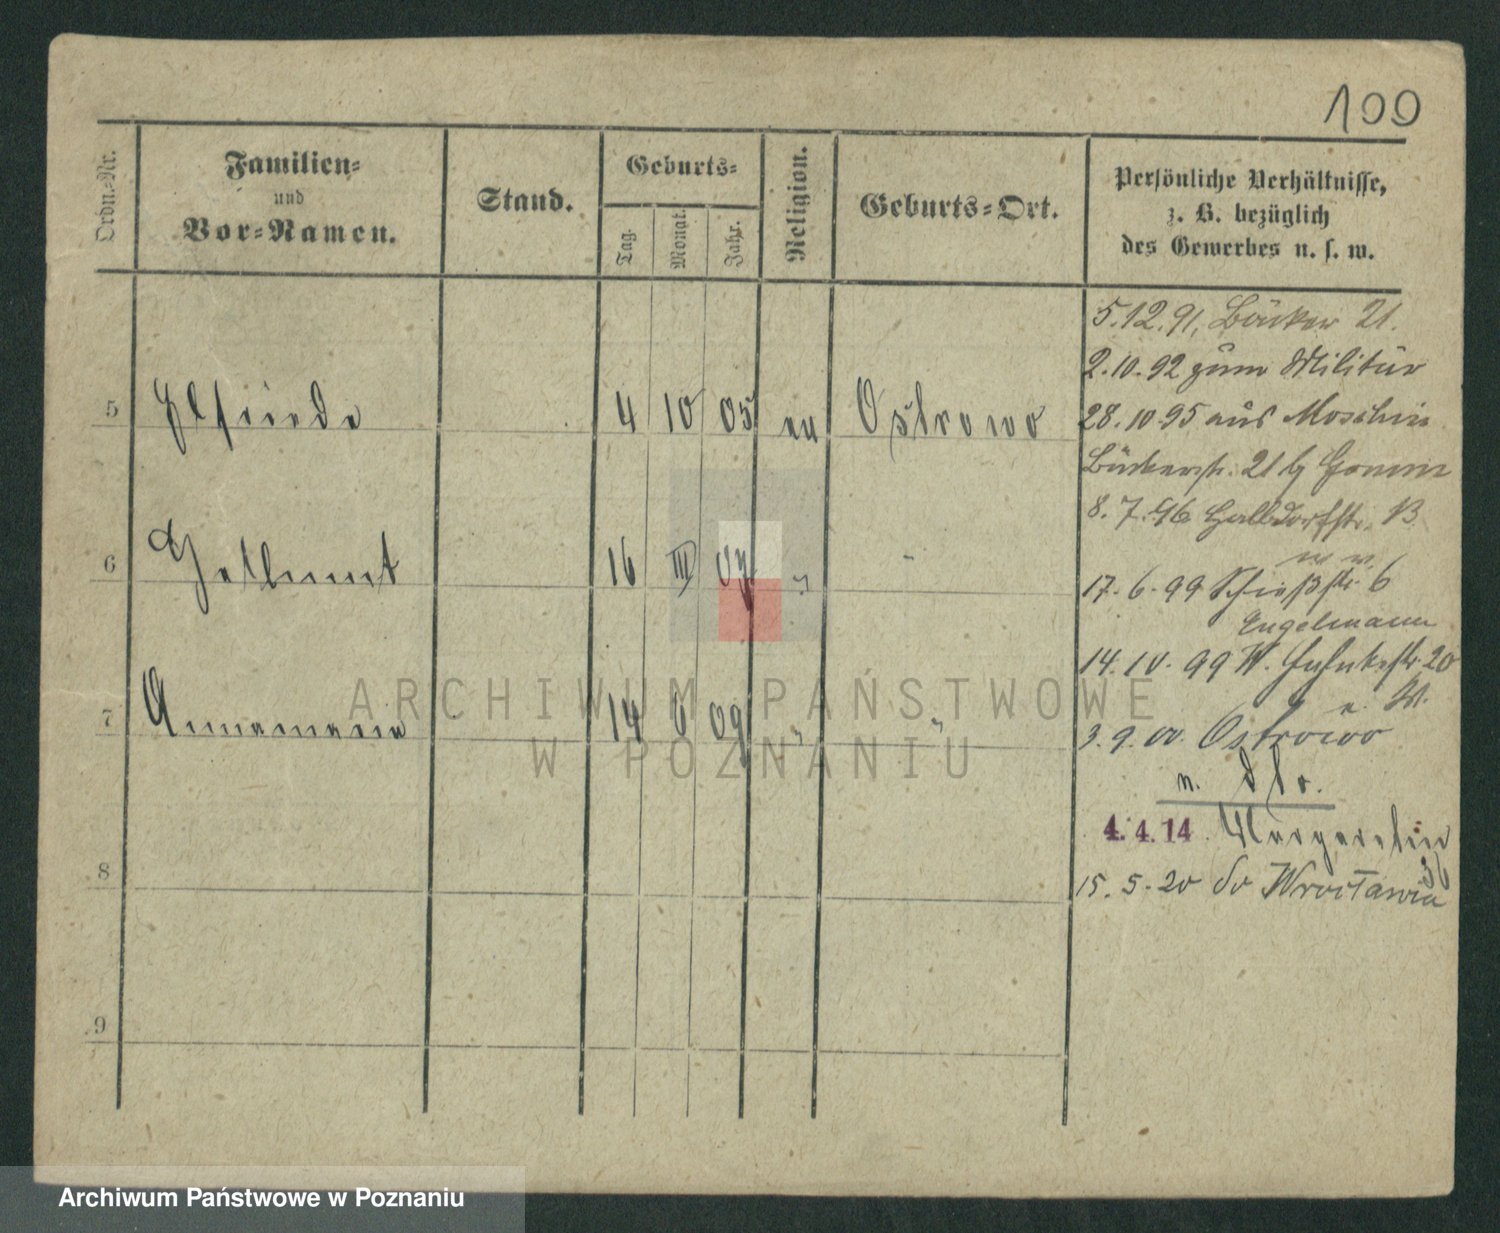 100
Ordn.-Nr.
Familien-
und
Vor-Namen.
Stand.
Geburts-
Tag.
Monat.
Jahr.
Religion.
Geburts-Ort.
Persönliche Verhältnisse,
z. B. bezüglich
des Gewerbes u. s. w.
5 Elfriede 4 10 05 ev Ostrowo
6 Hellmut 16 III 07 "
7 Annemarie 14 6 09 " "
8
9
5.12.91, Bäcker 21.
2.10.92 zum Militär
28.10.95 aus Moschin
Bäckerstr. 21 b
8.7.96 Halbdorfstr.
17.6.99 Schießstr. 6
Engelmann
14. 10. 99 W. 20
3.9.00. Ostrowo
n.
4.4.14
15.5.20 do Wrocławia
ARCHIWUM PAŃSTWOWE
W POZNANIU
Archiwum Państwowe w Poznaniu